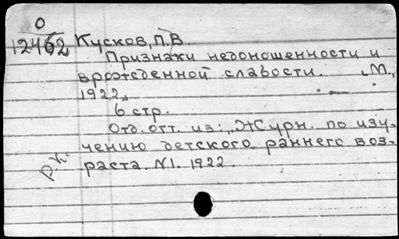 О
12462 Кусков, П.В.
Признаки недоношенности и
врожденной слабости. М.,
1922.
6 стр.
Отд. отт. из: „Журн. по изу-
чению детского раннего воз-
раста. №1. 1922.
р.к.